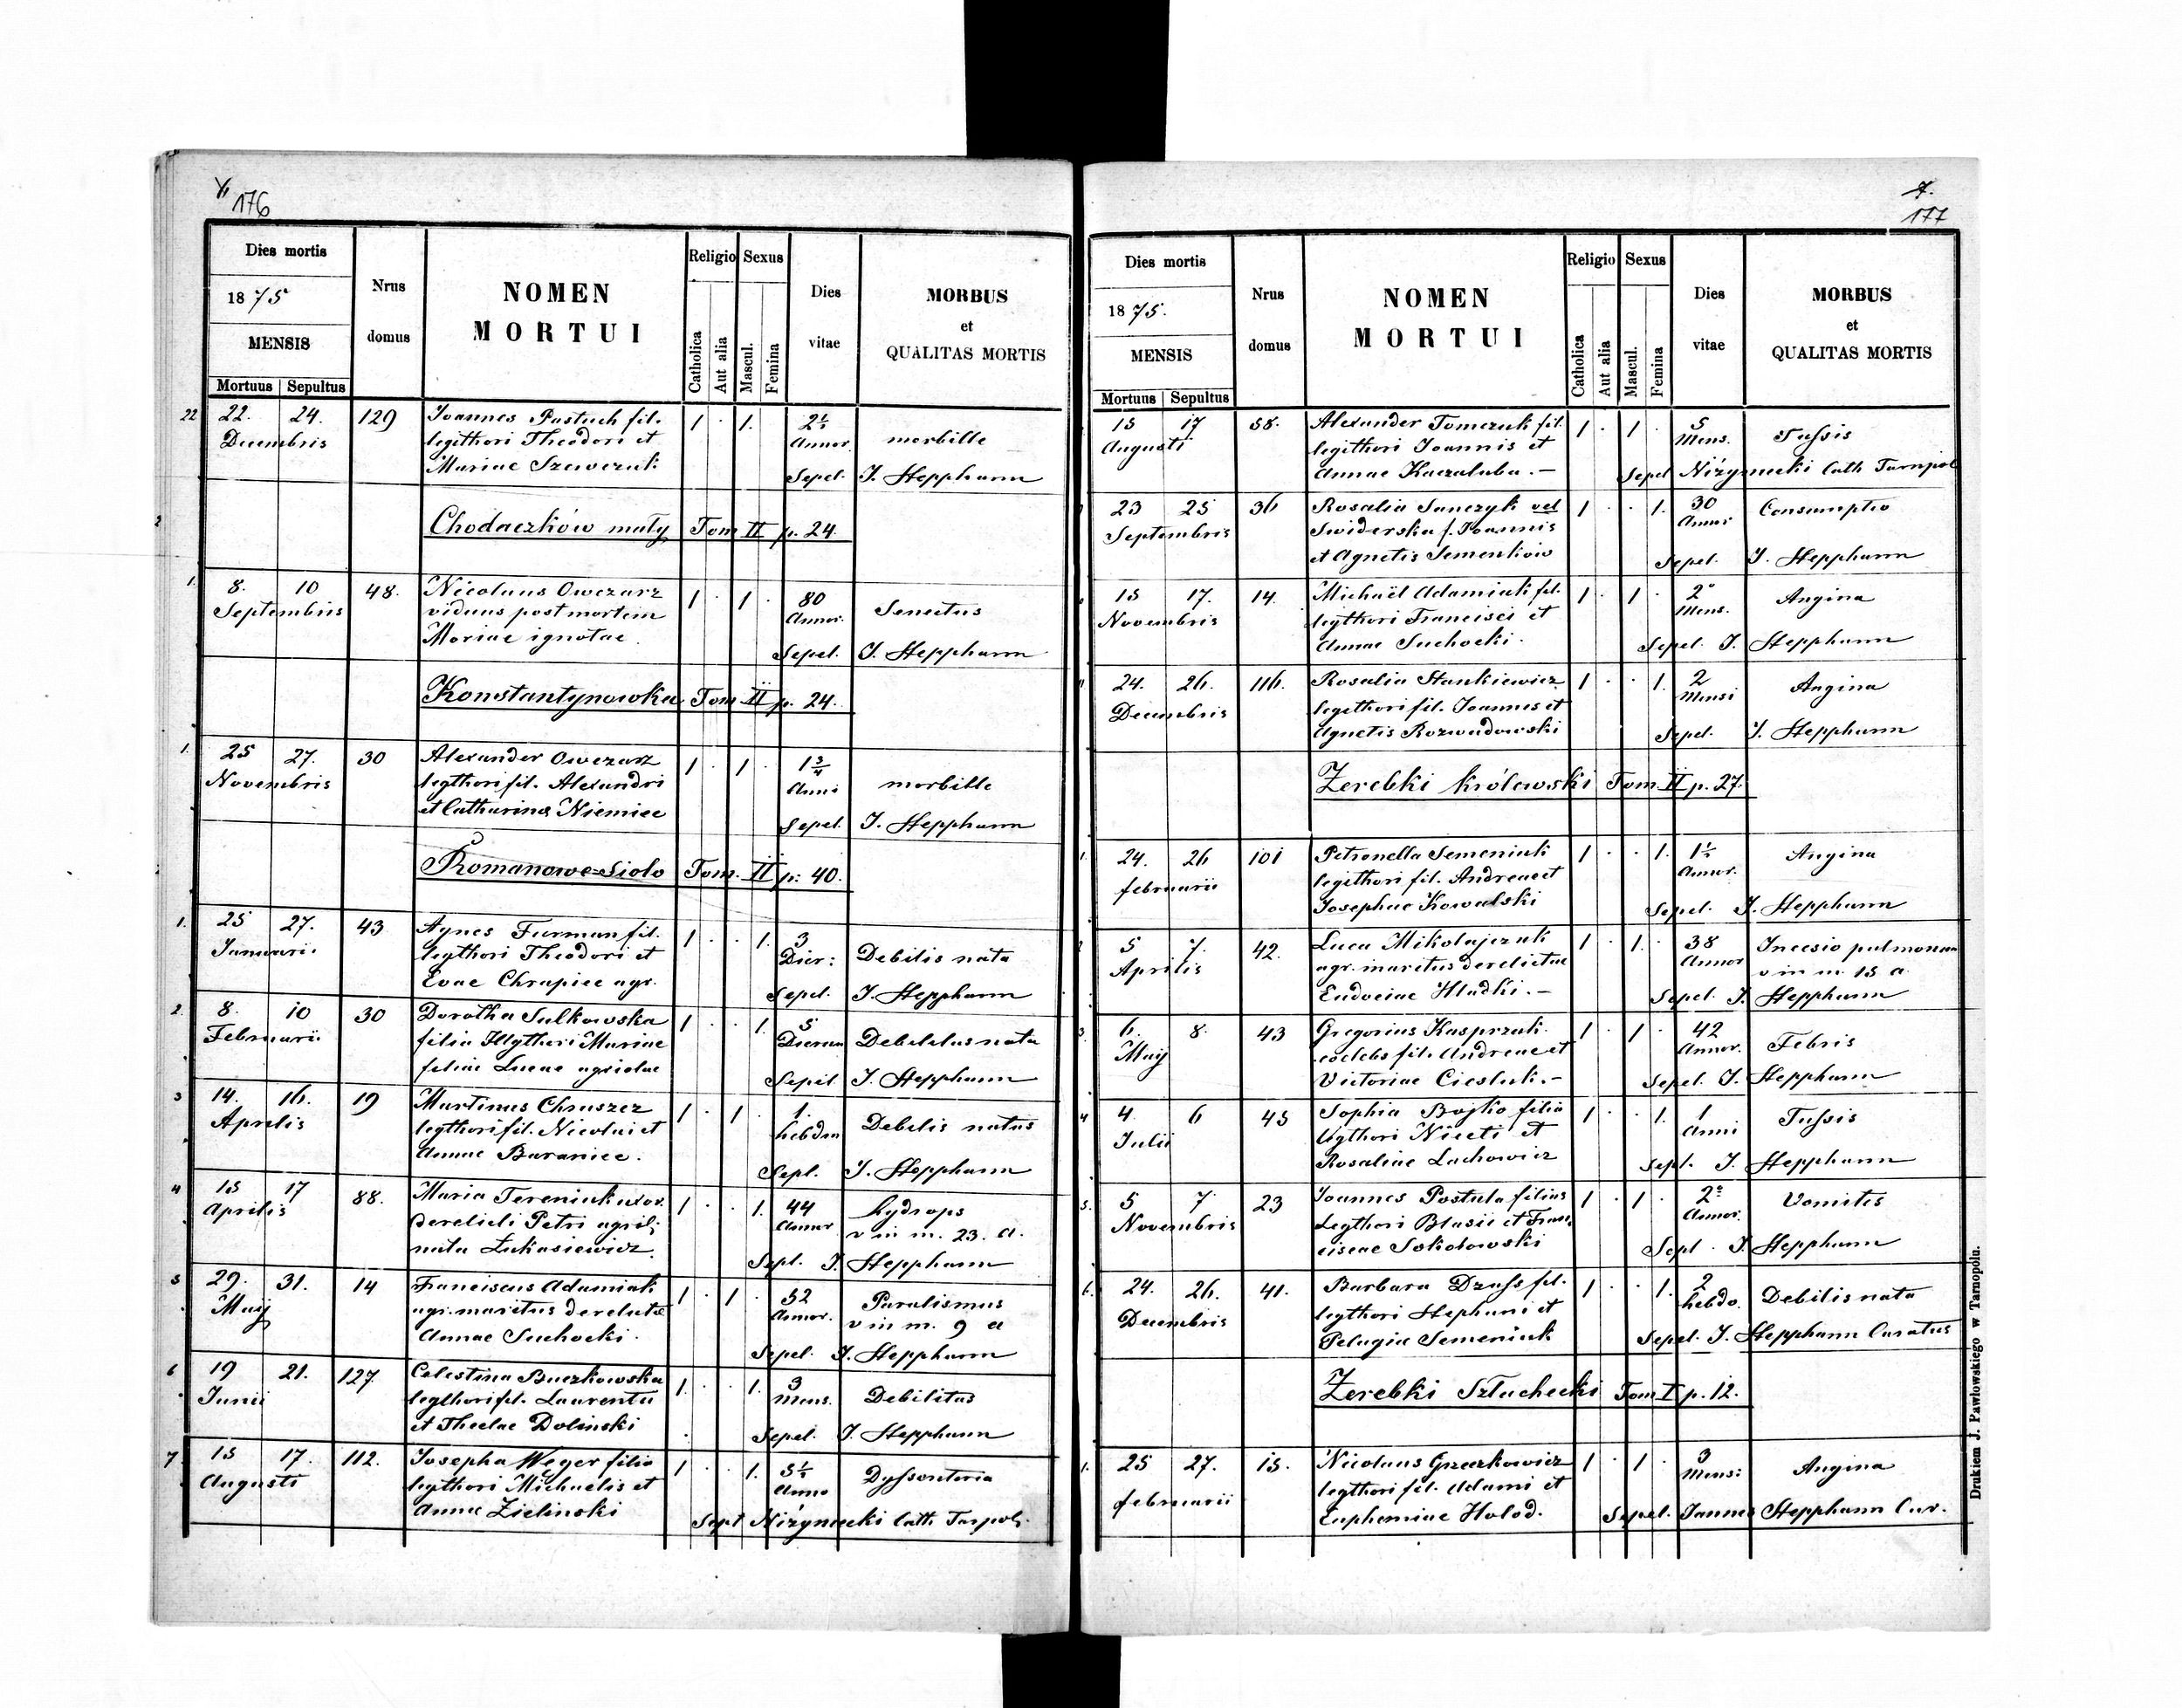 176
Dies mortis
1875
MENSIS
Mortuus Sepultus
Nrus domus
NOMEN
MORTUI
Religio Sexus
Catholica Aut alia Mascul. Femina
Dies vitae
MORBUS
et
QUALITAS MORTIS
22 22. 24. 129 Joannes Pastuch fil. 1 . 1. 2½
Decembris legithori Theodori et Annor. morbille
Mariae Szewczuk Sepel. J. Hepphann
Chodaczków mały Tom II p. 24.
1. 8. 10 48. Nicolaus Owczarz 1 . 1 . 80
Septembris viduus post mortem Annor. Senectus
Mariae ignotae. Sepel. J. Hepphann
Konstantynowka Tom II p. 24.
1. 25 27. 30 Alexander Owczarz 1 . 1 . 1¾
Novembris legthori fil. Alexandri Anni morbille
et Catharina Niemiec Sepel. J. Hepphann
Romanowe-Sioło Tom. II p. 40.
1. 25 27. 43 Agnes Furman fil. 1 . . 1. 3
Januarii legthori Theodori et Dier: Debilis nata
Evae Chrapiec agr. Sepel. J. Hepphann
2. 8. 10 30 Dorotha Sulkowska 1 . . 1. 5
Februarii filia Illgthori Mariae Dierum Debilitas nata
filiae Lucae agricolae Sepel. J. Hepphann
3 14. 16. 19 Martinus Chruszcz 1 . 1 . 1.
Aprilis legthori fil. Nicolai et hebdm Debilis natus
Annae Baraniec. Sepl. J. Hepphann
4 15 17 88. Maria Tereniuk uxor. 1 . . 1. 44 hydrops
Aprilis derelicti Petri agril; Annor v in m. 23. a.
nata Łukasiewicz. Sepl. J. Hepphann
5 29. 31. 14 Franciscus Adamiak 1 . 1 . 52 Paralismus
Maij agr. maritus derelictae Annor. v in m. 9 a
Annae Suchocki. Sepel. J. Hepphann
6 19 21. 127. Celestina Buczkowska 1. . . 1. 3
Junii legthori fil. Laurentii Mens. Debilitas
et Theclae Dolinski Sepel. J. Hepphann
7. 15 17. 112. Josepha Weger filia 1 . . 1. 5½
Augusti legthori Michaelis et Anno Dyssenteria
Anna Zielinski Sept Niżyniecki Cath. Tarpol.
177
Dies mortis
1875.
MENSIS
Mortuus Sepultus
Nrus domus
NOMEN
MORTUI
Religio Sexus
Catholica Aut alia Mascul. Femina
Dies vitae
MORBUS
et
QUALITAS MORTIS
15 17 58. Alexander Tomczuk fil. 1 . 1 . 5
Augusti legithori Joannis et Mens. Tussis
Annae Kaczaluba.— Sepel Niżyniecki Cath Tarnpol
23 25 36 Rosalia Sanczyk vel 1 . . 1. 30 Consumptio
Septembris Swiderska f. Joannis Annor
et Agnetis Semenków Sepel. J. Hepphann
15 17. 14. Michaël Adamiuk fil. 1 . 1 . 2 Angina
Novembris legthori Francisci et Mens.
Annae Suchocki. Sepel. J. Hepphann
24. 26. 116. Rosalia Stankiewicz 1 . . 1. 2 Angina
Decembris legithori fil. Joannis et Mensi
Agnetis Rozwadowski Sepel. J. Hepphann
Zerebki królewski Tom II p. 27.
1. 24. 26 101 Petronella Semeniuk 1 . . 1. 1½ Angina
februarii legithori fil. Andreae et Annor.
Josephae Kowalski Sepel. J. Hepphann
2 5 7. 42. Luca Mikołajczuk 1 . 1. . 38 Incesio pulmonum
Aprilis agr. maritus derelictae Annor v in m. 15 a.
Eudociae Hladki.— Sepel. J. Hepphann
3. 6. 8. 43 Gregorius Kasprzuk 1 . 1 . 42
Maij coelebs fil. Andreae et Annor. Febris
Victoriae Cieśluk.— Sepel. J. Hepphann
4 4. 6 45 Sophia Bojko filia 1 . . 1. 1 Tussis
Julii legthori Niceti et Anni
Rosaliae Lachowicz Sepl. J. Hepphann
5. 5 7. 23 Joannes Postula filius 1 . 1 . 2 Vomites
Novembris Legthori Blasii et Fran,, Annor.
ciscae Sokołowski Sepl. J. Hepphann
6. 24. 26. 41. Barbara Dzuss fil. 1 . . 1. 2 Debilis nata
Decembris legthori Stephani et hebdo.
Pelagia Semeniuk Sepel. J. Hepphann Curatus
Zerebki Szlachecki Tom I p. 12.
1. 25 27. 15. Nicolaus Greczkowicz 1 . 1 . 3 Angina
februarii legthori fil. Adami et Mens:
Euphemiae Hołod. Sepel. Joannes Hepphann Cur.
Drukiem J. Pawłowskiego w Tarnopolu.